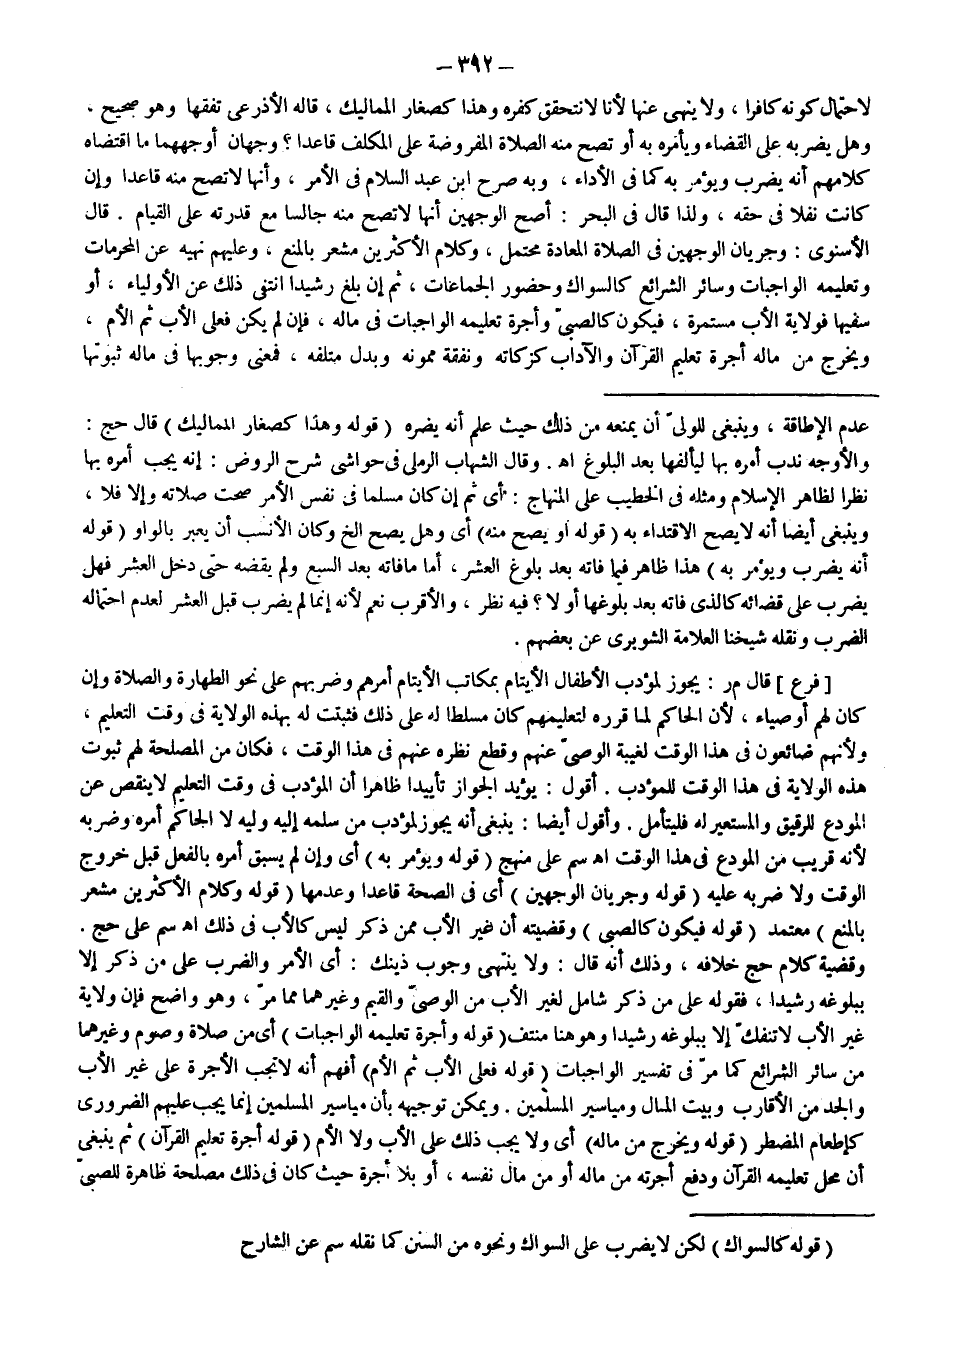 – ٣٩٢ –
لاحتمال كونه كافرا ، ولا ينهى عنها لأنا لانتحقق كفره وهذا كصغار المماليك ، قاله الأذرعى تفقها وهو صحيح .
وهل يضربه على القضاء ويأمره به أو تصح منه الصلاة المفروضة على المكلف قاعدا ؟ وجهان أوجههما ما اقتضاه
كلامهم أنه يضرب ويؤمر به كما فى الأداء ، وبه صرح ابن عبد السلام فى الأمر ، وأنها لاتصح منه قاعدا وإن
كانت نفلا فى حقه ، ولذا قال فى البحر : أصح الوجهين أنها لاتصح منه جالسا مع قدرته على القيام . قال
الأسنوى : وجريان الوجهين فى الصلاة المعادة محتمل ، وكلام الأكثرين مشعر بالمنع ، وعليهم نهيه عن المحرمات
وتعليمه الواجبات وسائر الشرائع كالسواك وحضور الجماعات ، ثم إن بلغ رشيدا انتفى ذلك عن الأولياء ، أو
سفيها فولاية الأب مستمرة ، فيكون كالصبىّ وأجرة تعليمه الواجبات فى ماله ، فإن لم يكن فعلى الأب ثم الأم ،
ويخرج من ماله أجرة تعليم القرآن والآداب كزكاته ونفقة ممونه وبدل متلفه ، فمعنى وجوبها فى ماله ثبوتها
عدم الإطاقة ، وينبغى للولىّ أن يمنعه من ذلك حيث علم أنه يضره ( قوله وهذا كصغار المماليك ) قال حج :
والأوجه ندب أمره بها ليألفها بعد البلوغ اه . وقال الشهاب الرملى فى حواشى شرح الروض : إنه يجب أمره بها
نظرا لظاهر الإسلام ومثله فى الخطيب على المنهاج : أى ثم إن كان مسلما فى نفس الأمر صحت صلاته وإلا فلا ،
وينبغى أيضا أنه لايصح الاقتداء به ( قوله أو يصح منه) أى وهل يصح الخ وكان الأنسب أن يعبر بالواو ( قوله
أنه يضرب ويؤمر به ) هذا ظاهر فيما فاته بعد بلوغ العشر ، أما مافاته بعد السبع ولم يقضه حتى دخل العشر فهل
يضرب على قضائه كالذى فاته بعد بلوغها أو لا ؟ فيه نظر ، والأقرب نعم لأنه إنما لم يضرب قبل العشر لعدم احتماله
الضرب ونقله شيخنا العلامة الشوبرى عن بعضهم .
[ فرع ] قال مر : يجوز لمؤدب الأطفال الأيتام بمكاتب الأيتام أمرهم وضربهم على نحو الطهارة والصلاة وإن
كان لهم أوصياء ، لأن الحاكم لما قرره لتعليمهم كان مسلطا له على ذلك فثبتت له بهذه الولاية فى وقت التعليم ،
ولأنهم ضائعون فى هذا الوقت لغيبة الوصىّ عنهم وقطع نظره عنهم فى هذا الوقت ، فكان من المصلحة لهم ثبوت
هذه الولاية فى هذا الوقت للمؤدب . أقول : يؤيد الجواز تأييدا ظاهرا أن المؤدب فى وقت التعليم لاينقص عن
المودع للرقيق والمستعير له فليتأمل . وأقول أيضا : ينبغى أنه يجوز لمؤدب من سلمه إليه وليه لا الحاكم أمره وضربه
لأنه قريب من المودع فى هذا الوقت اه سم على منهج ( قوله ويؤمر به ) أى وإن لم يسبق أمره بالفعل قبل خروج
الوقت ولا ضربه عليه ( قوله وجريان الوجهين ) أى فى الصحة قاعدا وعدمها ( قوله وكلام الأكثرين مشعر
بالمنع ) معتمد ( قوله فيكون كالصبى ) وقضيته أن غير الأب ممن ذكر ليس كالأب فى ذلك اه سم على حج .
وقضية كلام حج خلافه ، وذلك أنه قال : ولا ينتهى وجوب ذينك : أى الأمر والضرب على من ذكر إلا
ببلوغه رشيدا ، فقوله على من ذكر شامل لغير الأب من الوصىّ والقيم وغيرهما مما مرّ ، وهو واضح فإن ولاية
غير الأب لاتنفكّ إلا ببلوغه رشيدا وهو هنا منتف ( قوله وأجرة تعليمه الواجبات ) أى من صلاة وصوم وغيرهما
من سائر الشرائع كما مرّ فى تفسير الواجبات ( قوله فعلى الأب ثم الأم) أفهم أنه لاتجب الأجرة على غير الأب
والجد من الأقارب وبيت المال ومياسير المسلمين . ويمكن توجيهه بأن مياسير المسلمين إنما يجب عليهم الضرورى
كإطعام المضطر ( قوله ويخرج من ماله) أى ولا يجب ذلك على الأب ولا الأم ( قوله أجرة تعليم القرآن ) ثم ينبغى
أن محل تعليمه القرآن ودفع أجرته من ماله أو من مال نفسه ، أو بلا أجرة حيث كان فى ذلك مصلحة ظاهرة للصبىّ
( قوله كالسواك ) لكن لايضرب على السواك ونحوه من السنن كما نقله سم عن الشارح